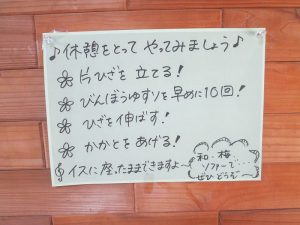 ♪休憩をとって やってみましょう♪
片ひざを 立てる!
びんぼうゆすりを早めに10回!
ひざを伸ばす!
かかとをあげる!
イスに座ったままできますよ〜
和・梅
ソファーで・・・
ぜひどうぞ